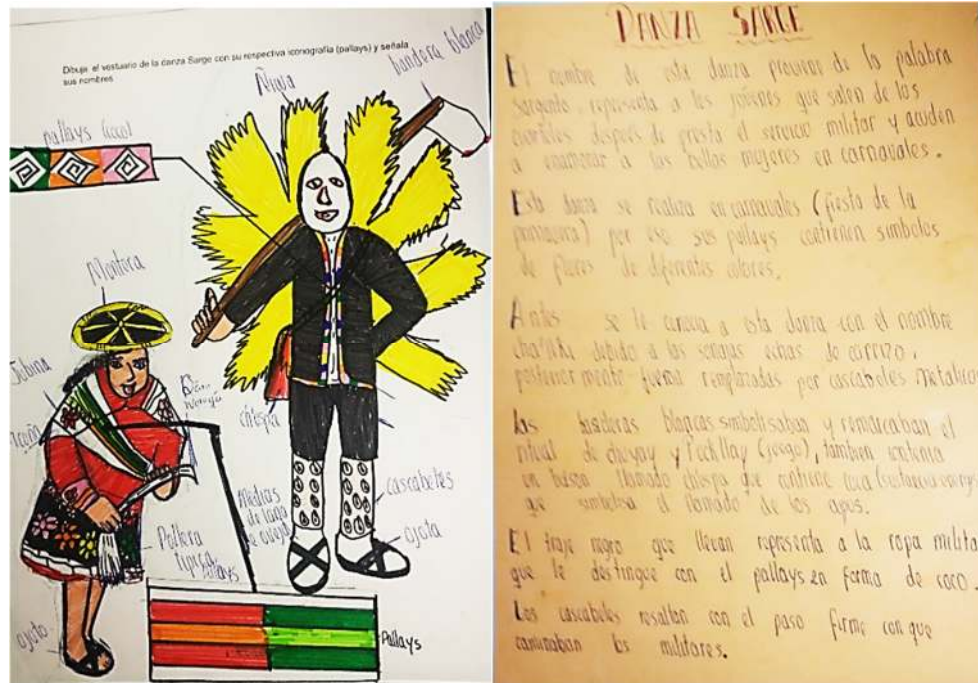 Dibuja el vestuario de la danza Sarge con su respectiva iconografía (pallays) y señala
sus nombres
pallays (coco)
Ñujta
bandera blanca
Montera
Jubina
chuspa
Medias
de lana
de oveja
cascabeles
ojota
Pollera
pallays
ojota
Pallays
DANZA SARGE
El nombre de esta danza proviene de la palabra
Sargento, representa a los jóvenes que salen de los
cuarteles después de presta el servicio militar y acuden
a enamorar a las bellas mujeres en carnavales.
Esta danza se realiza en carnavales (fiesta de la
primavera) por eso sus pallays contienen simbolos
de flores de diferentes colores.
Antes se le conocia a esta danza con el nombre
debido a las sonajas echas de carrizo,
posterior mente fueron remplazadas por cascabeles metalicas
las banderas blancas simbolisaban y remarcaban el
ritual de y (juego), tambien
un llamado chuspa que contiene coca
que simbolisa el llamado de los apus.
El traje negro que llevan representa a la ropa milita
que le destingue con el pallays en forma de coco.
Los cascabeles resaltan con el paso firme con que
caminaban los militares.